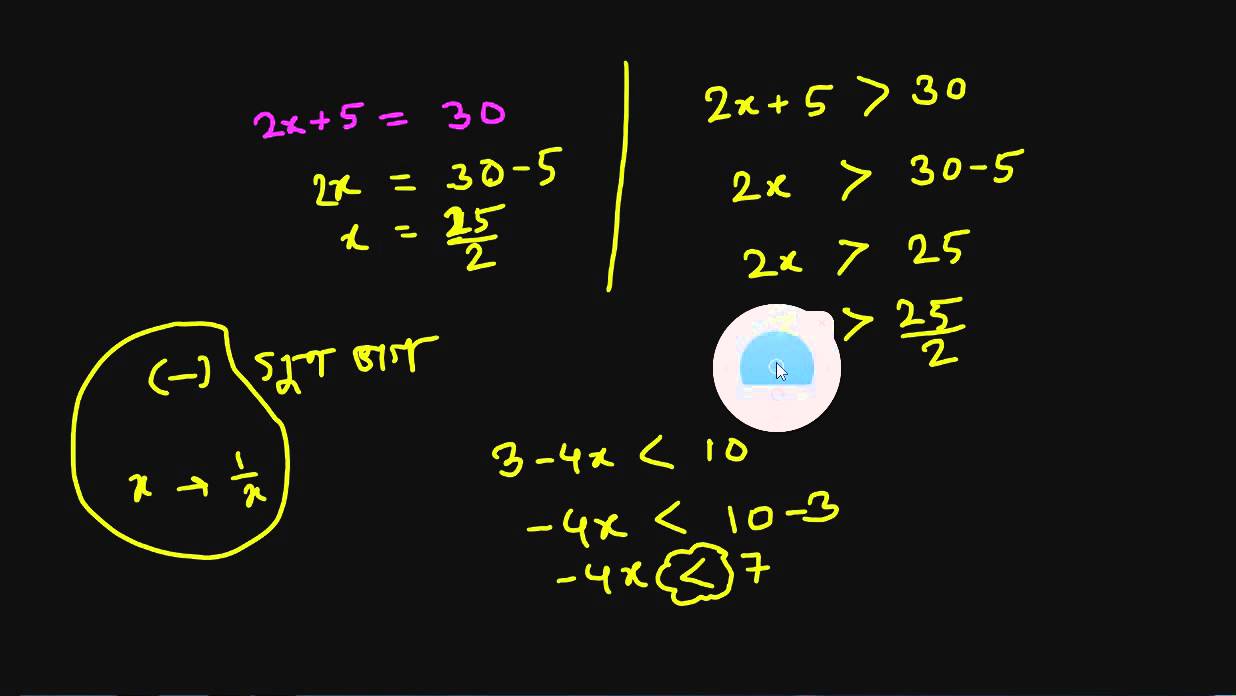 2x+5 = 30
2x = 30-5
x = 25/2
2x+5 > 30
2x > 30-5
2x > 25
> 25/2
(-) গুণ ভাগ
x → 1/x
3-4x < 10
-4x < 10-3
-4x < 7